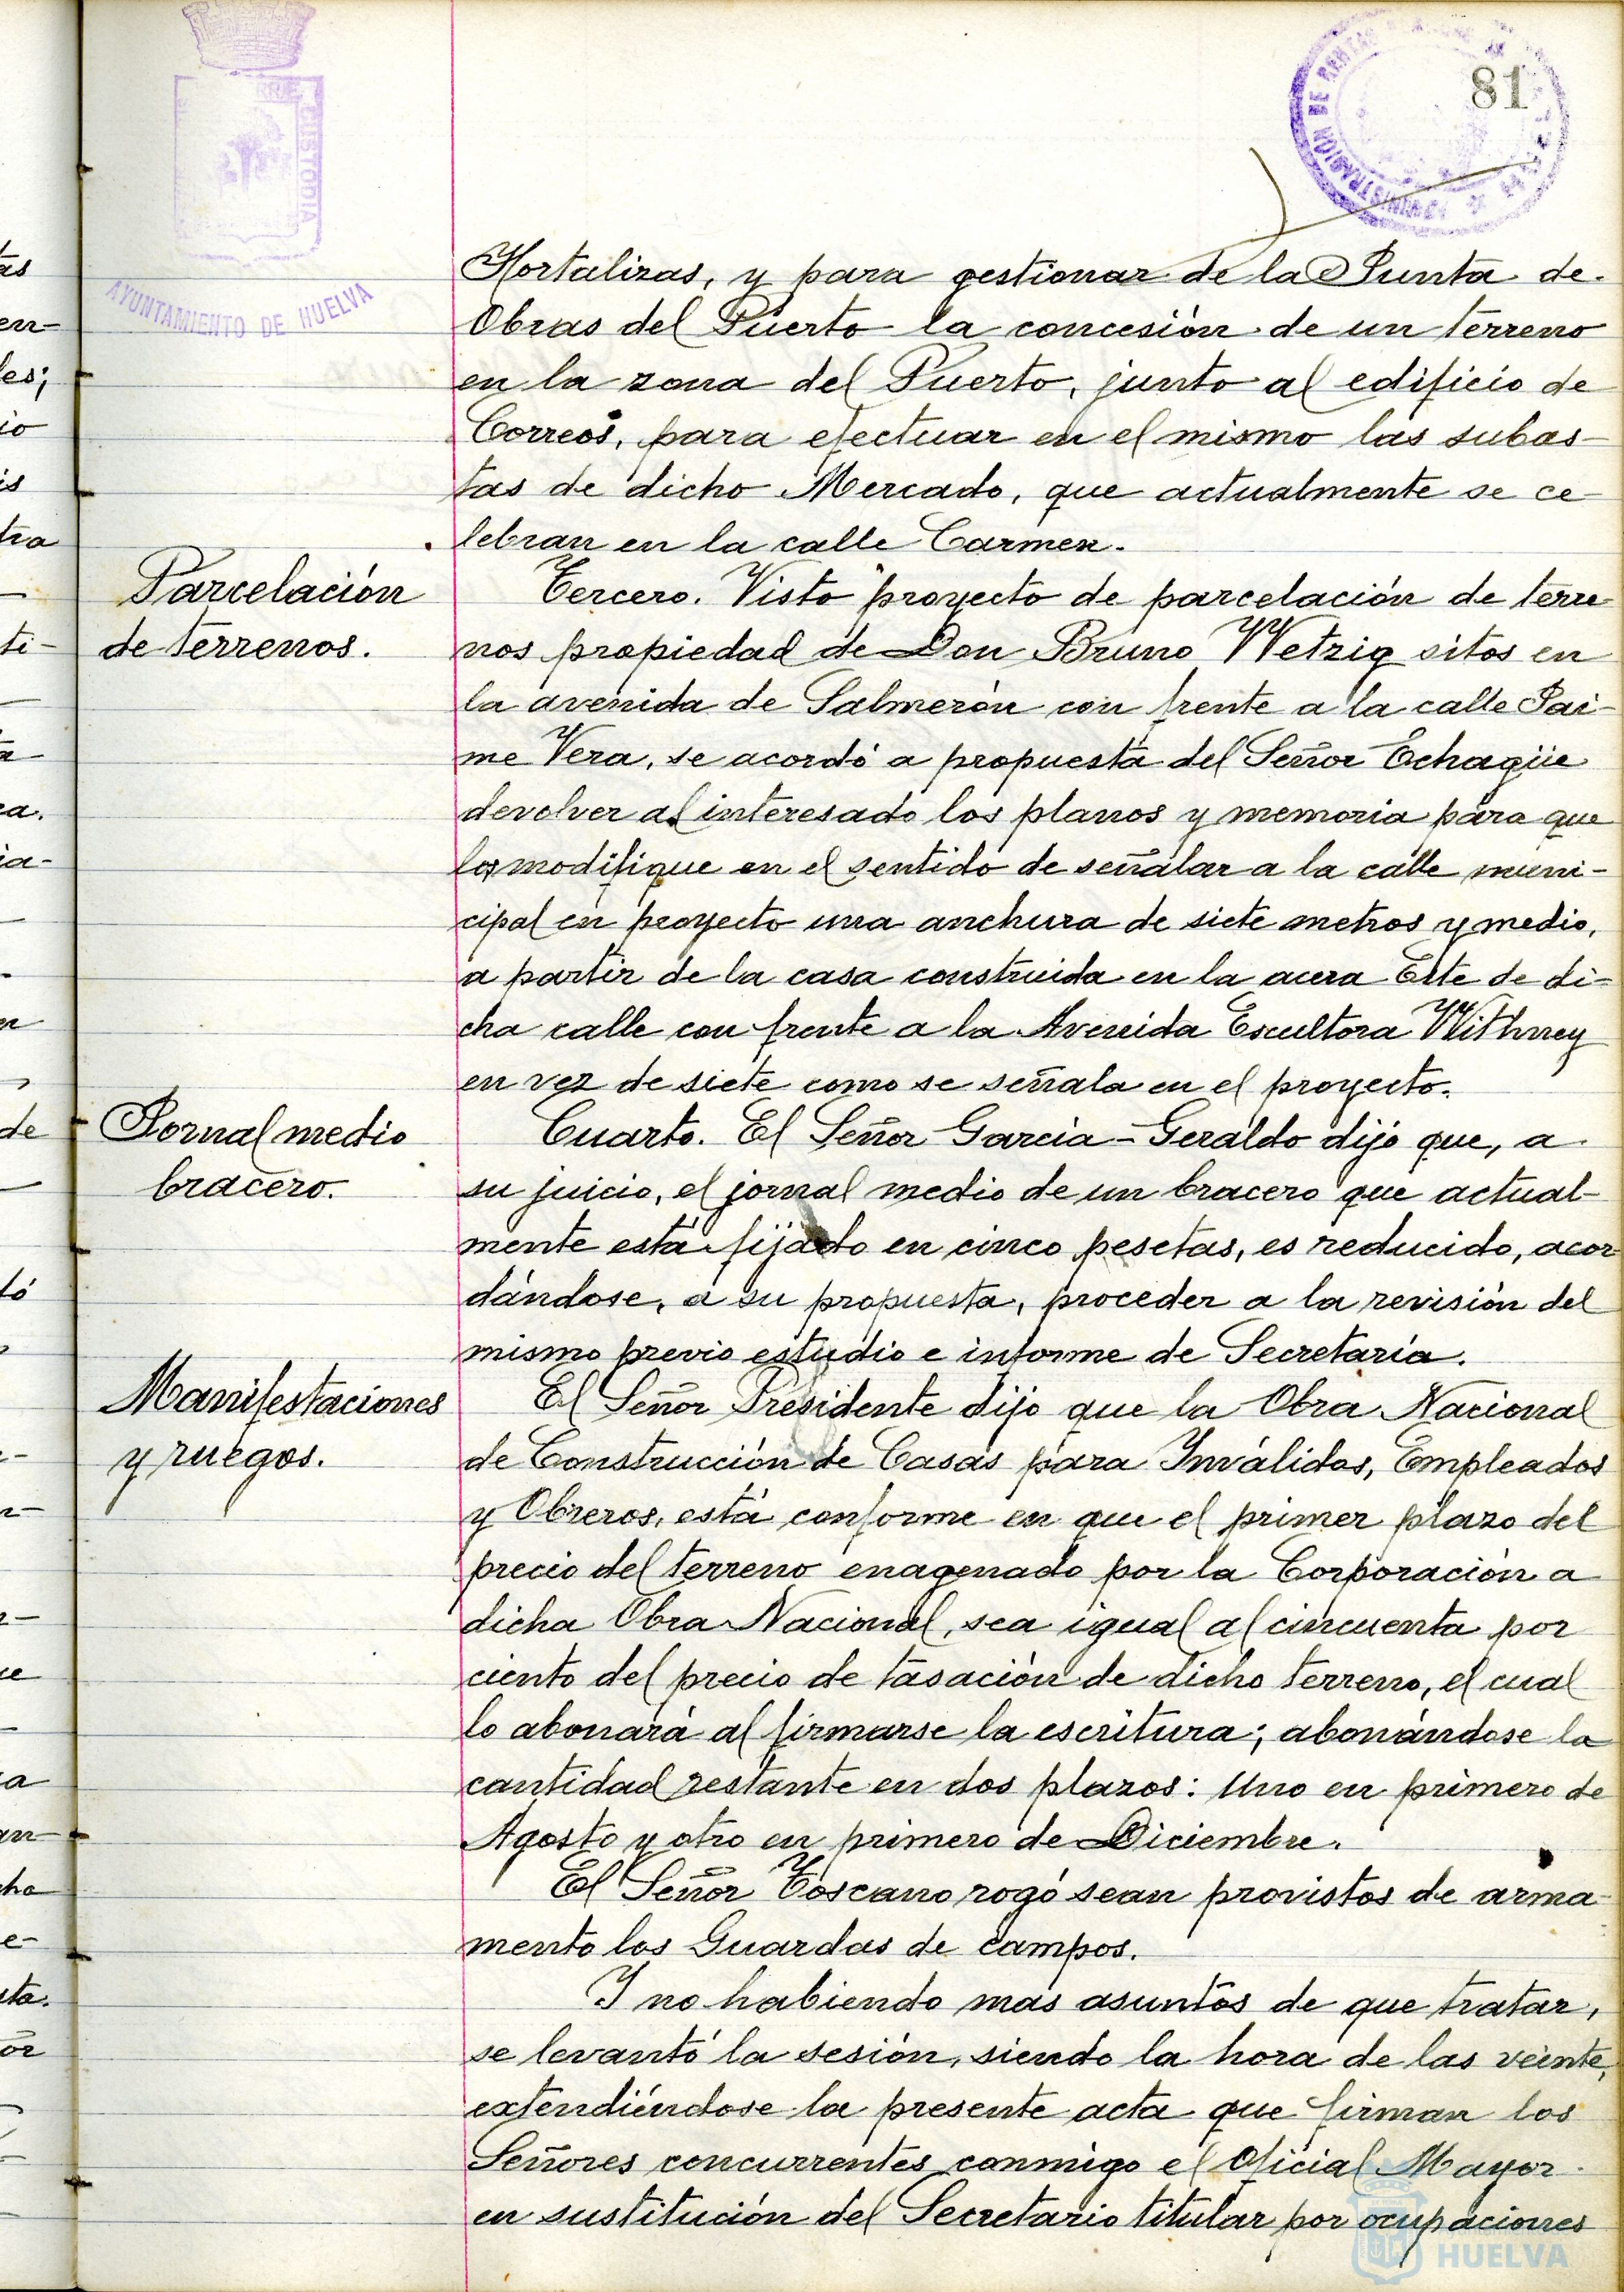 81
PORTUS MARIS ET TERRAE CUSTODIA
AYUNTAMIENTO DE HUELVA
ADMINISTRACIÓN DE RENTAS
Hortalizas, y para gestionar de la Junta de
Obras del Puerto la concesión de un terreno
en la zona del Puerto, junto al edificio de
Correos, para efectuar en el mismo las subas-
tas de dicho Mercado, que actualmente se ce-
lebran en la calle Carmen.
Parcelación
de terrenos.
Tercero. Visto proyecto de parcelación de terre-
nos propiedad de Don Bruno Wetzig sitos en
la avenida de Salmerón con frente a la calle Jai-
me Vera, se acordó a propuesta del Señor Echagüe
devolver al interesado los planos y memoria para que
los modifique en el sentido de señalar a la calle muni-
cipal en proyecto una anchura de siete metros y medio,
a partir de la casa construida en la acera Este de di-
cha calle con frente a la Avenida Escultora Withney
en vez de siete como se señala en el proyecto.
Jornal medio
bracero.
Cuarto. El Señor Garcia-Geraldo dijo que, a
su juicio, el jornal medio de un bracero que actual-
mente está fijado en cinco pesetas, es reducido, acor
dándose, a su propuesta, proceder a la revisión del
mismo previo estudio e informe de Secretaría.
Manifestaciones
y ruegos.
El Señor Presidente dijo que la Obra Nacional
de Construcción de Casas para Inválidos, Empleados
y Obreros, está conforme en que el primer plazo del
precio del terreno enagenado por la Corporación a
dicha Obra Nacional, sea igual al cincuenta por
ciento del precio de tasación de dicho terreno, el cual
lo abonará al firmarse la escritura; abonándose la
cantidad restante en dos plazos: Uno en primero de
Agosto y otro en primero de Diciembre.
El Señor Toscano rogó sean provistos de arma-
mento los Guardas de campos.
I no habiendo mas asuntos de que tratar,
se levantó la sesión, siendo la hora de las veinte,
extendiéndose la presente acta que firman los
Señores concurrentes conmigo el Oficial Mayor
en sustitución del Secretario titular por ocupaciones
HUELVA